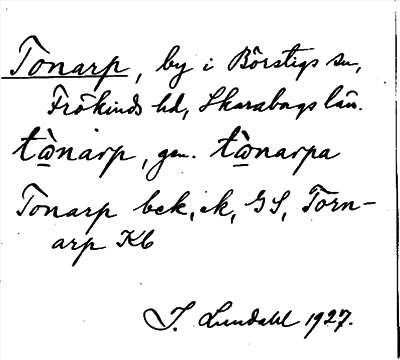 Tonarp, by i Börstigs sn,
Frökinds hd, Skarabogs län.
tὼ̲nàrp, gen. tὼ̲narpa
Tonarp bek, ek, GS, Torn-
arp Kb
J. Lundahl 1927.